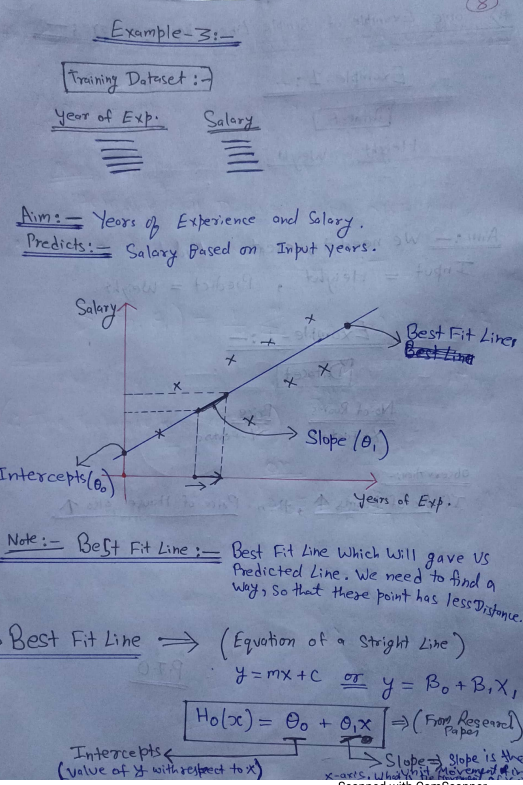 8
Example-3:-
Training Dataset :-
Year of Exp. Salary
Aim:- Years of Experience and Salary.
Predicts:- Salary Based on Input years.
Salary
Best Fit Lines
Best Line
Slope (θ1)
Intercepts (θ0)
Years of Exp.
Note:- Best Fit Line:- Best Fit Line Which Will gave US
Predicted Line. We need to find a
way, so that these point has less Distance.
Best Fit Line ⇒ (Equation of a Stright Line)
y = mx + C or y = B0 + B1X1
H0(x) = θ0 + θ1x ⇒ (From Research Paper)
Intercepts ← → Slope ⇒ slope is the
(value of y with respect to x) x-axis, What movement
Scanned with CamScanner